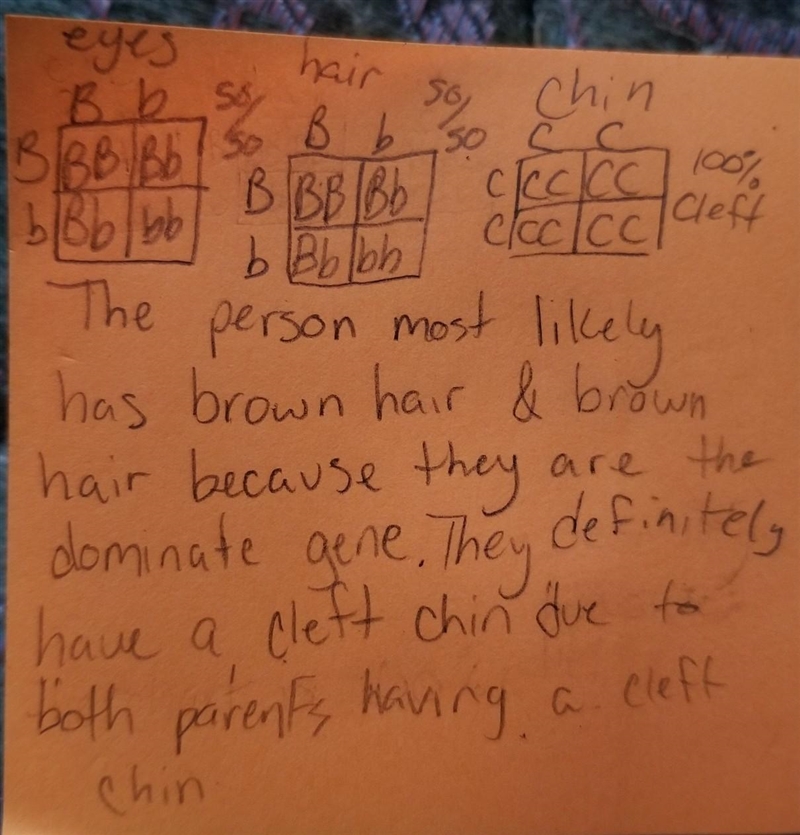 eyes
B b 50/
50
B BB Bb
b Bb bb
hair
50/
50
B b
B BB Bb
b Bb bb
Chin
C C
C CC CC 100%
C CC CC Cleft
The person most likely
has brown hair & brown
hair because they are the
dominate gene. They definitely
have a cleft chin due to
both parents having a cleft
chin